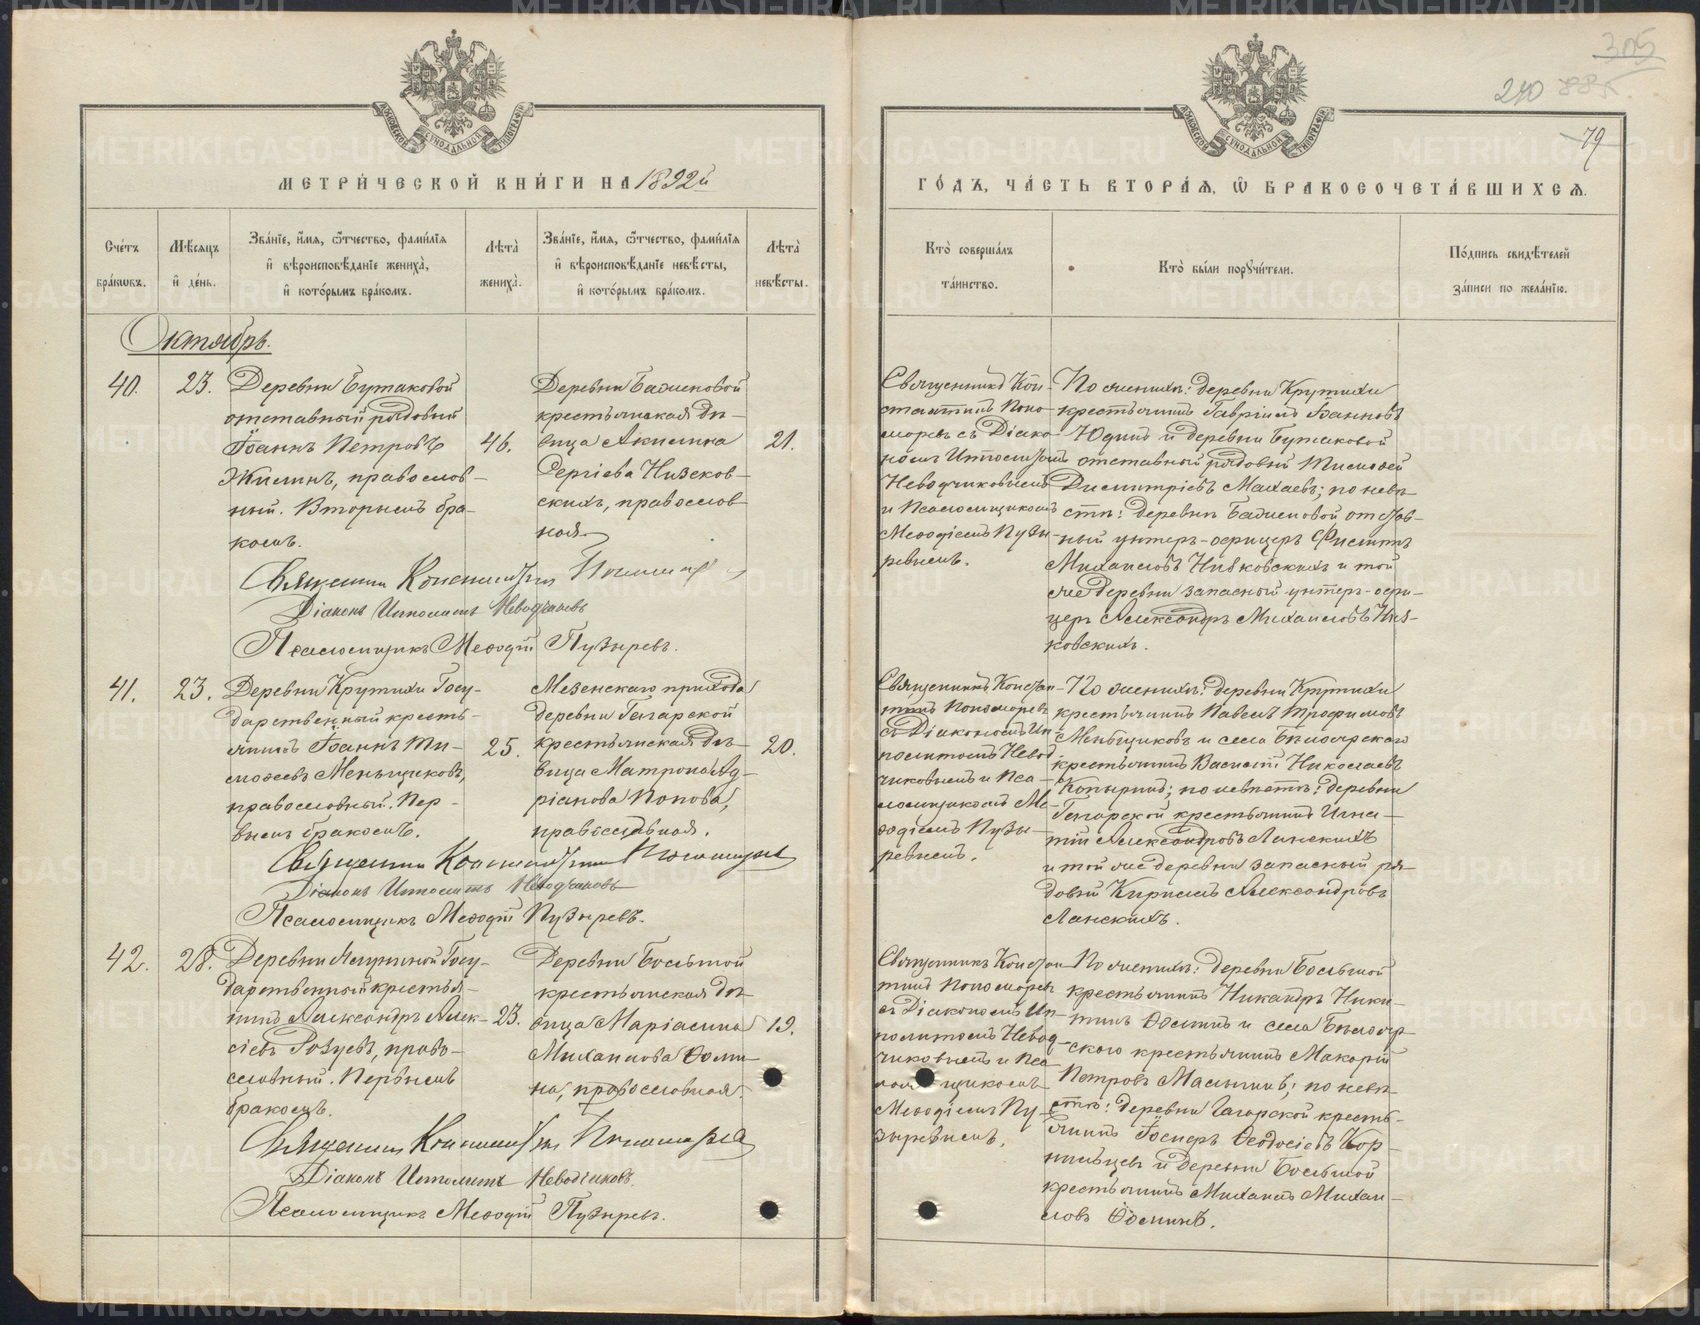 305
210 885.
79
МЕТРИ́ЧЕСКОЙ КНИ́ГИ НА 1892й
ГО́ДЪ, ЧА́СТЬ ВТОРА́Я, Ѽ БРАКОСОЧЕТА́ВШИХСЯ.
Сче́тъ бра́кωвъ.
Мѣ́сяцъ и҆ де́нь.
Зва́нїе, и҆́мя, ѻ҆́тчество, фами́лїя
и҆ вѣроисповѣ́данїе жениха̀,
и҆ кото́рымъ бра́комъ.
Лѣта̀ жениха̀.
Зва́нїе, и҆́мя, ѻ҆́тчество, фами́лїя
и҆ вѣроисповѣ́данїе невѣ́сты,
и҆ кото́рымъ бра́комъ.
Лѣта̀ невѣ́сты.
Кто̀ соверша́лъ
та́инство.
Кто̀ бы́ли порꙋчи́тели.
По́дпись свидѣ́телей
за́писи по жела́нїю.
Октябрь.
40.
23.
Деревни Бутаковой
отставный рядовый
Іоаннъ Петровъ
Жилинъ, православ-
ный. Вторымъ бра-
комъ.
46.
Деревни Баженовой
крестьянская дѣ-
вица Акилина
Сергіева Низков-
скихъ, православ-
ная.
21.
Священникъ Кон-
стантинъ Поно-
моревъ съ Діако-
номъ Ипполитомъ
Неводчиковымъ
и Псаломщикомъ
Меѳодіемъ Пузы-
ревымъ.
По женихѣ: деревни Крутихи
крестьянинъ Гавріилъ Іоанновъ
Юдинъ и деревни Бутаковой
отставный рядовый Тимофей
Димитріевъ Махаевъ; по невѣ-
стѣ: деревни Баженовой отстав-
ный унтеръ-офицеръ Филиппъ
Михаиловъ Низковскихъ и той
же деревни запасной унтеръ-офи-
церъ Александръ Михаиловъ Низ-
ковскихъ.
Священникъ Константинъ Пономаревъ
Діаконъ Ипполитъ Неводчиковъ
Псаломщикъ Меѳодій Пузыревъ.
41.
23.
Деревни Крутихи Госу-
дарственный кресть-
янинъ Іоаннъ Ти-
мофеевъ Меньщиковъ,
православный. Пер-
вымъ бракомъ.
25.
Мезенскаго прихода
деревни Гагарской
крестьянская дѣ-
вица Матрона Ад-
ріанова Попова,
православная.
20.
Священникъ Констан-
тинъ Пономоревъ
съ Діакономъ Ип-
политомъ Невод-
чиковымъ и Пса-
ломщикомъ Ме-
ѳодіемъ Пузы-
ревымъ.
По женихѣ: деревни Крутихи
крестьянинъ Павелъ Трофимовъ
Меньщиковъ и села Бѣлоярскаго
крестьянинъ Василій Николаевъ
Копыринъ; по невѣстѣ: деревни
Гагарской крестьянинъ Игна-
тій Александровъ Ланскихъ
и той же деревни запасный ря-
довый Кириллъ Александровъ
Ланскихъ.
Священникъ Константинъ Пономаревъ
Діаконъ Ипполитъ Неводчиковъ
Псаломщикъ Меѳодій Пузыревъ.
42.
28.
Деревни Ялуниной Госу-
дарственный крестья-
нинъ Александръ Алек-
сіевъ Розуевъ, право-
славный. Первымъ
бракомъ.
23.
Деревни Большой
крестьянская дѣ-
вица Маріамна
Михаилова Ѳоми-
на, православная.
19.
Священникъ Констан-
тинъ Пономоревъ
съ Діакономъ Ип-
политомъ Невод-
чиковымъ и Пса-
ломщикомъ
Меѳодіемъ Пу-
зыревымъ.
По женихѣ: деревни Большой
крестьянинъ Никандръ Ники-
тинъ Ѳоминъ и села Бѣлояр-
скаго крестьянинъ Макарій
Петровъ Малыгинъ; по невѣ-
стѣ: деревни Гагарской кресть-
янинъ Іосифъ Ѳеодосіевъ Кор-
нильцевъ и деревни Большой
крестьянинъ Михаилъ Михаи-
ловъ Ѳоминъ.
Священникъ Константинъ Пономарева
Діаконъ Ипполитъ Неводчиковъ.
Псаломщикъ Меѳодій Пузыревъ.